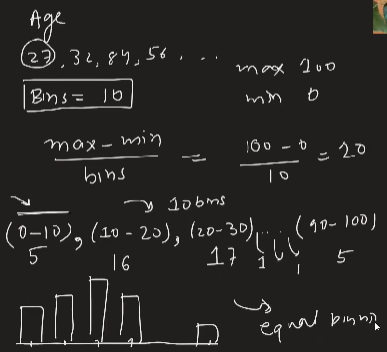 Age
27, 32, 84, 56, . . .
max 100
min 0
Bins = 10
max - min / bins = 100 - 0 / 10 = 20
→ 10 bins
(0-10), (10-20), (20-30), . . . (90-100)
5 16 17 1 1 1 5
→ equal binni